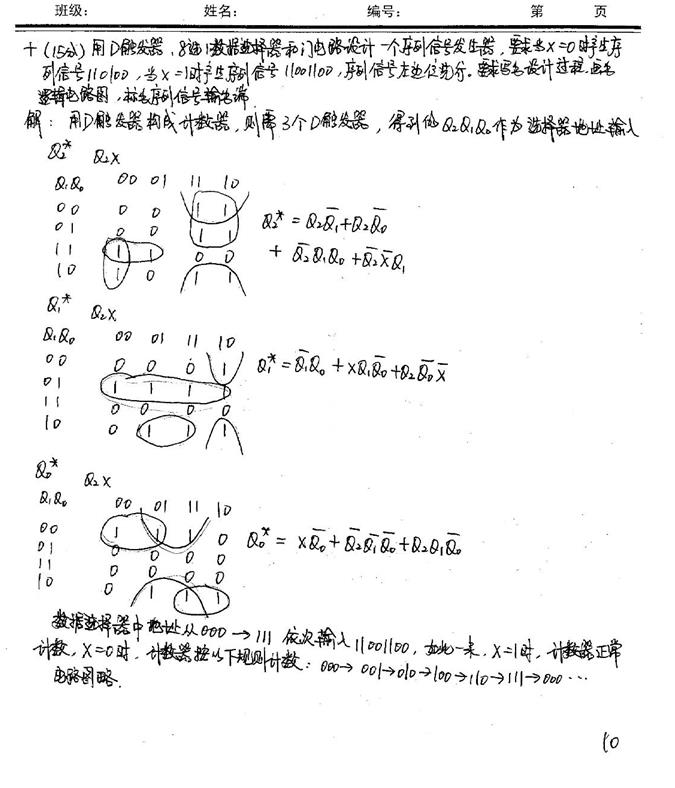 班级: 姓名: 编号: 第 页
十(15分)用D触发器,8选1数据选择器和门电路设计一个序列信号发生器,要求当X=0时产生序
列信号110100,当X=1时产生序列信号11001100,序列信号左边位先行。要求写出设计过程,画出
逻辑电路图,标出序列信号输出端.
解: 用D触发器构成计数器,则需3个D触发器,得到的Q₂Q₁Q₀作为选择器地址输入
Q₂* Q₂X
Q₁Q₀ 00 01 11 10
00 0 0 1 1
01 0 0 1 1
11 1 1 0 0
10 1 0 1 1
Q₂* = Q₂Q̅₁+Q₂Q̅₀
+ Q̅₂Q₁Q₀ + Q̅₂X̅Q₁
Q₁* Q₂X
Q₁Q₀ 00 01 11 10
00 0 0 0 1
01 1 1 1 1
11 0 0 0 0
10 0 1 1 1
Q₁* = Q̅₁Q₀ + XQ₁Q̅₀ + Q₂Q̅₀X̅
Q₀* Q₂X
Q₁Q₀ 00 01 11 10
00 1 1 1 0
01 0 0 0 0
11 0 0 0 0
10 0 1 1 1
Q₀* = XQ̅₀ + Q̅₂Q̅₁Q̅₀ + Q₂Q₁Q̅₀
数据选择器中地址从000→111依次输入11001100,如此一来,X=1时,计数器正常
计数,X=0时,计数器按以下规则计数:000→001→010→100→110→111→000⋯
电路图略.
10